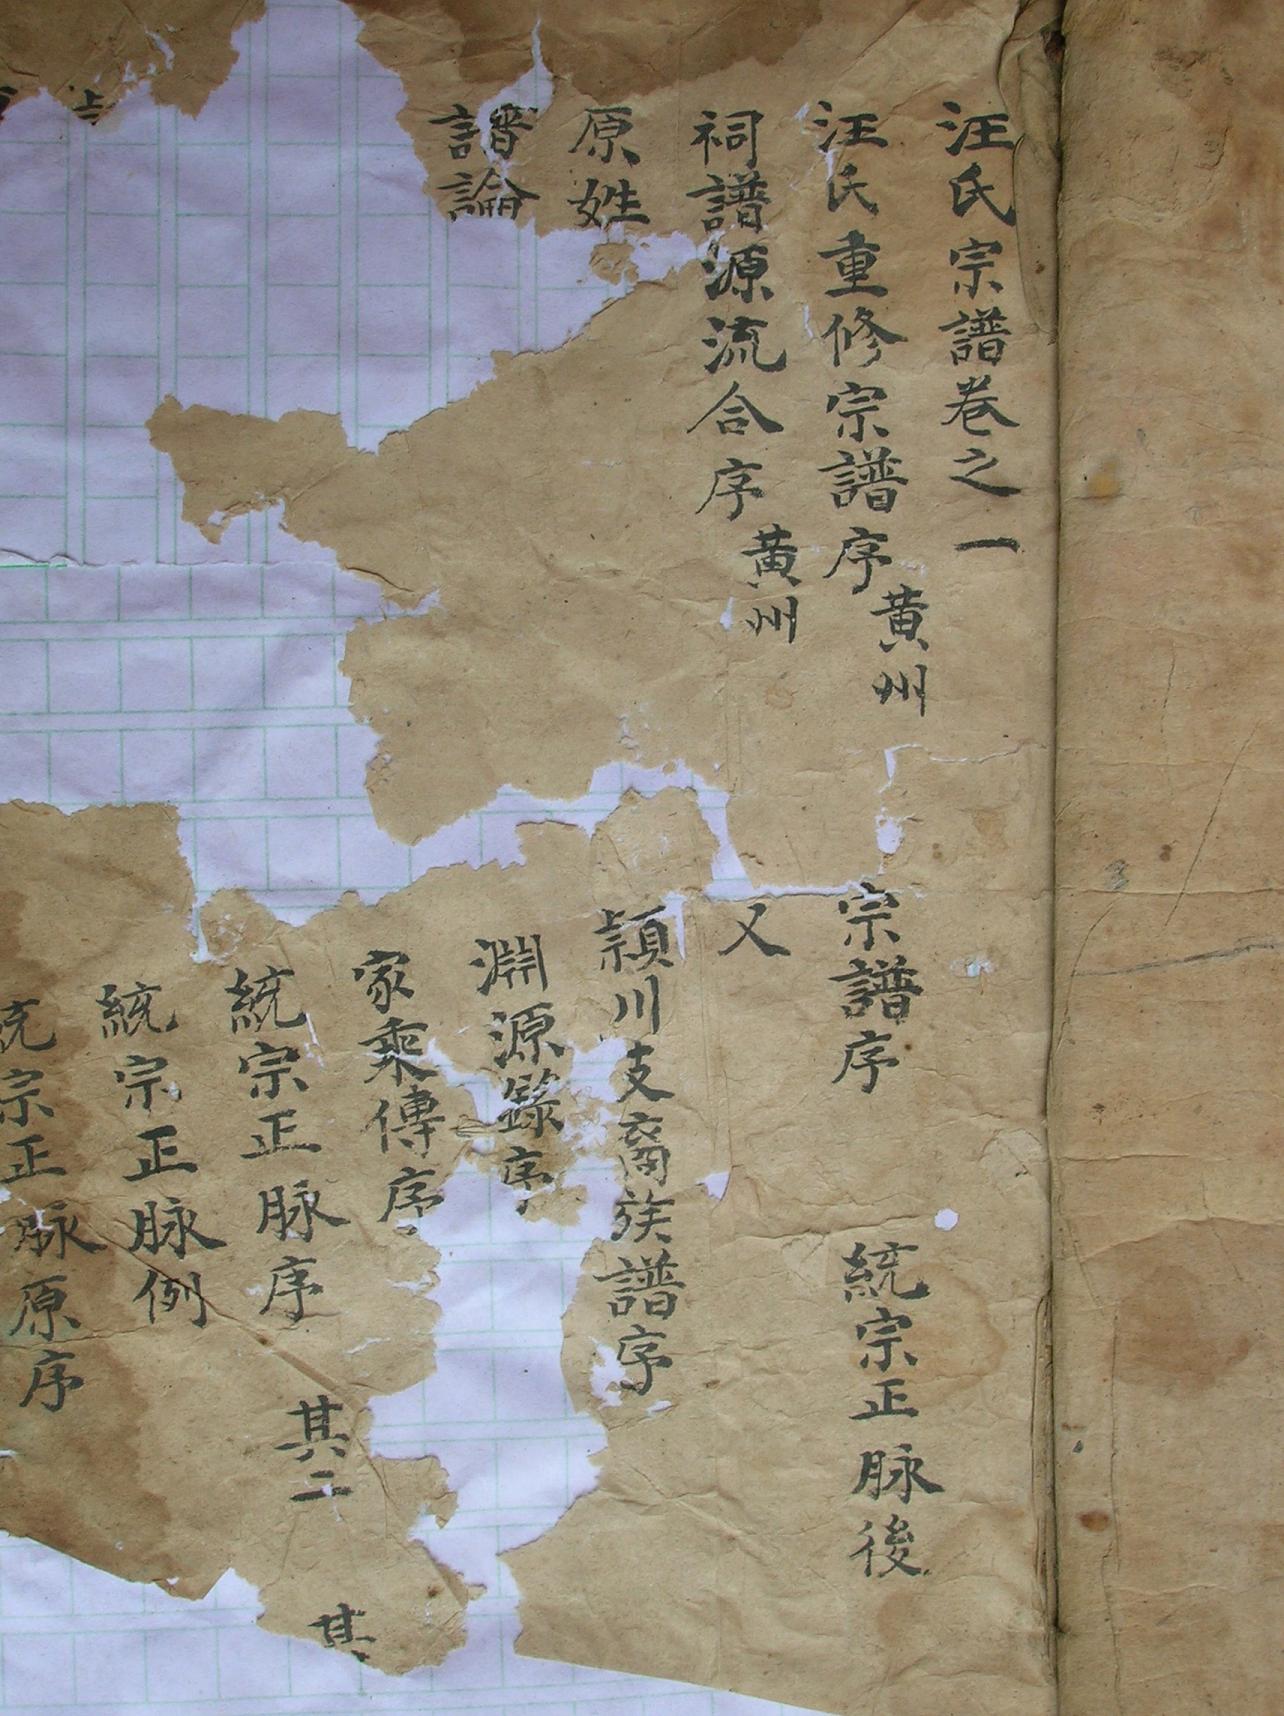 汪氏宗譜卷之一
汪氏重修宗譜序 黃州 宗譜序 統宗正脉後
祠譜源流合序 黃州 又
原姓 潁川支裔族譜序
譜論 淵源錄序
家乘傳序
統宗正脉序 其二 其
統宗正脉例
統宗正脉原序